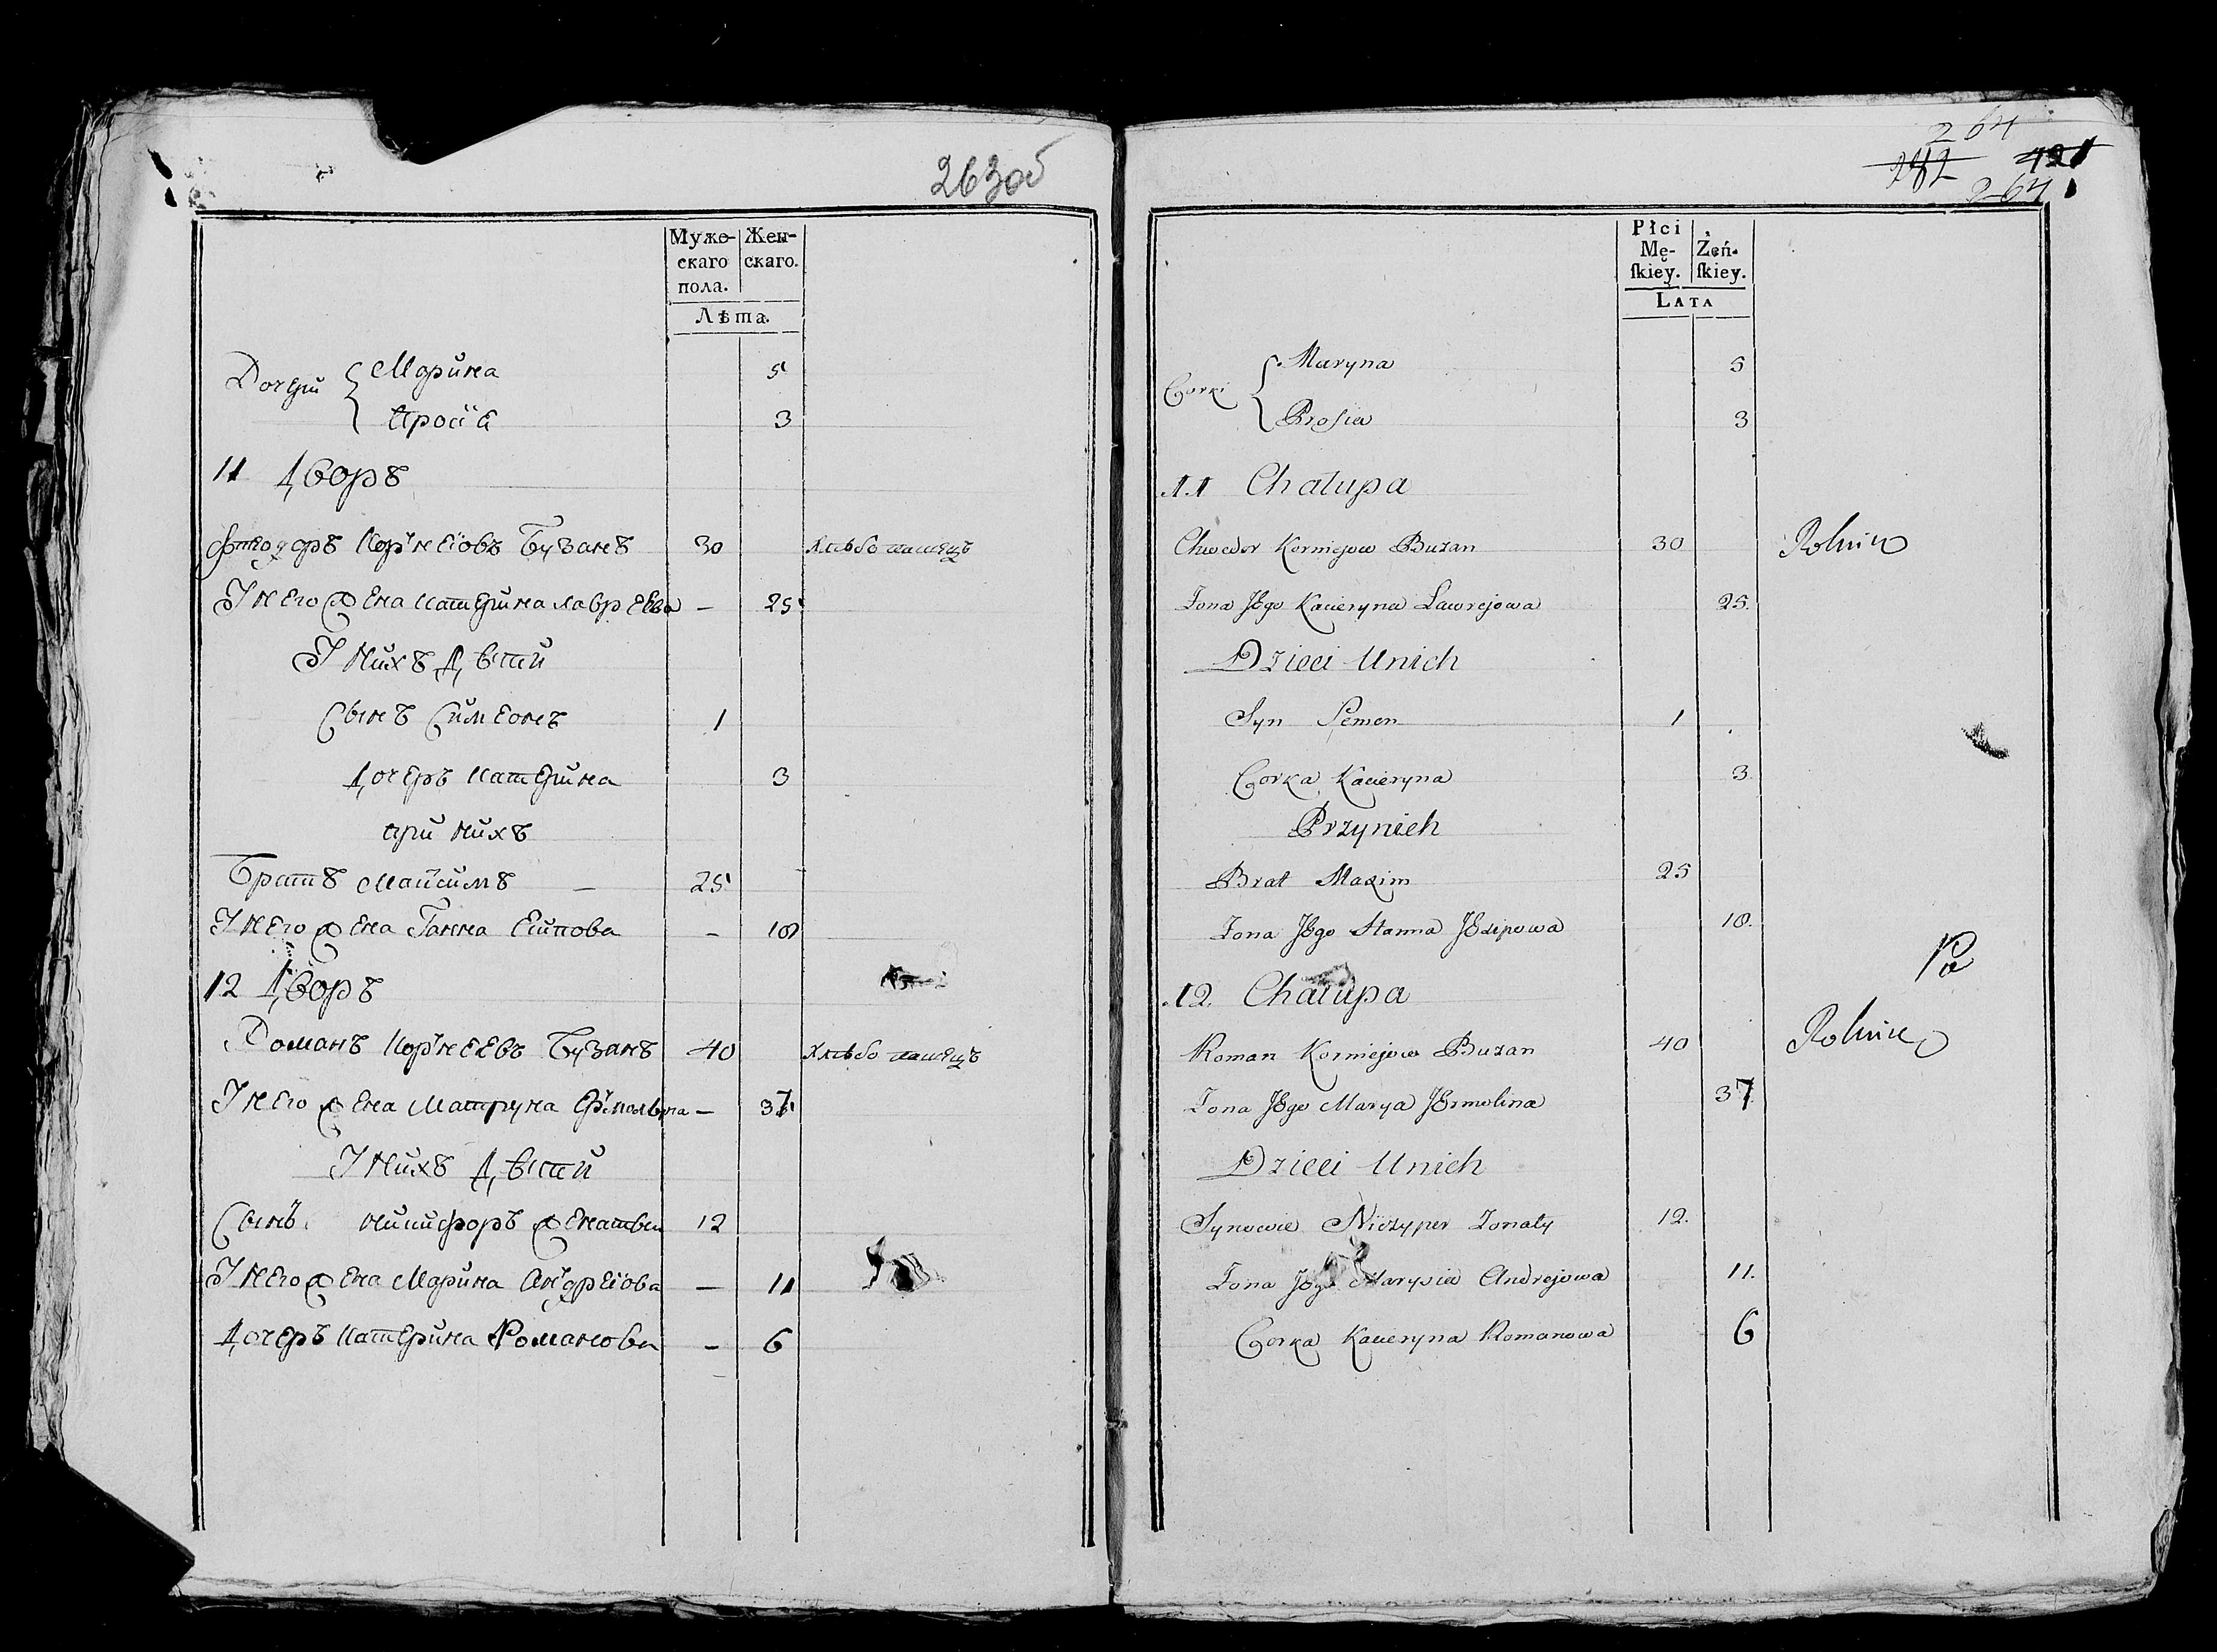 263об
Муже-
скаго
пола.
Жен-
скаго.
Лѣта.
Дочери
Марина 5
Прося 3
11 Дворъ
Фтеодоръ Корнеіовъ Бузанъ 30 Хлѣбопашецъ
У него жена Катерина Лаврѣева — 25
У нихъ дѣти
Сынъ Симеонъ 1
Дочеръ Катерина 3
при нихъ
Братъ Максимъ — 25
У него жена Ганна Есипова — 18
12 Дворъ
Романъ Корнеевъ Бузанъ 40 Хлѣбопашецъ
У него жена Матруна — 37
У нихъ дѣти
Сынъ Никифоръ женатъ 12
У него жена Марина Андреіова — 11
Дочеръ Катерина Романова — 6
264
421
264
Płci
Mę-
ſkiey.
Żeń-
ſkiey.
LATA
Corki
Maryna 5
Prosia 3
11 Chałupa
Chwedor Korniejow Buzan 30 Rolnik
Zona Jego Kacieryna Ławrejowa 25.
Dzieci Unich
Syn Semen 1
Corka Kacieryna 3
Przynich
Brat Maxim 25
Zona Jego Hanna Jezipowa 18.
12. Chałupa
Roman Korniejow Buzan 40 Rolnik
Zona Jego Marya Jermolina 37
Dzieci Unich
Synowie Niczyper Zonaty 12.
Zona Jego Marysia Andrejowa 11.
Corka Kacieryna Romanowa 6